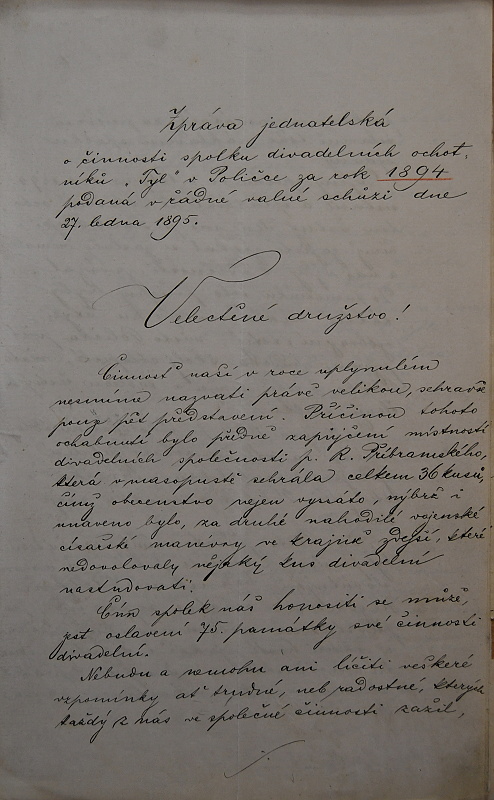 Zpráva jednatelská
o činnosti spolku divadelních ochot-
níků „Tyl" v Poličce za rok 1894
podaná v řádné valné schůzi dne
27. ledna 1895.
Velectěné družstvo!
Činnosť naší v roce uplynulém
nesmíme nazvati právě velikou, sehravše
pouze pět představení. Příčinou tohoto
ochabnutí bylo předně zapůjčení místností
divadelních společnosti p. K. Příbramského,
která v masopustě sehrála celkem 36 kusů,
čímž obecenstvo nejen vyssáto, nýbrž i
unaveno bylo, za druhé nahodilé vojenské
císařské manévry ve krajině zdejší, které
nedovolovaly nějaký kus divadelní
nastudovati.
Čím spolek náš honositi se může,
jest oslavení 75. památky své činnosti
divadelní.
Nebudu a nemohu ani líčiti veškeré
vzpomínky ať trudné, neb radostné, kterých
každý z nás ve společné činnosti zažil,